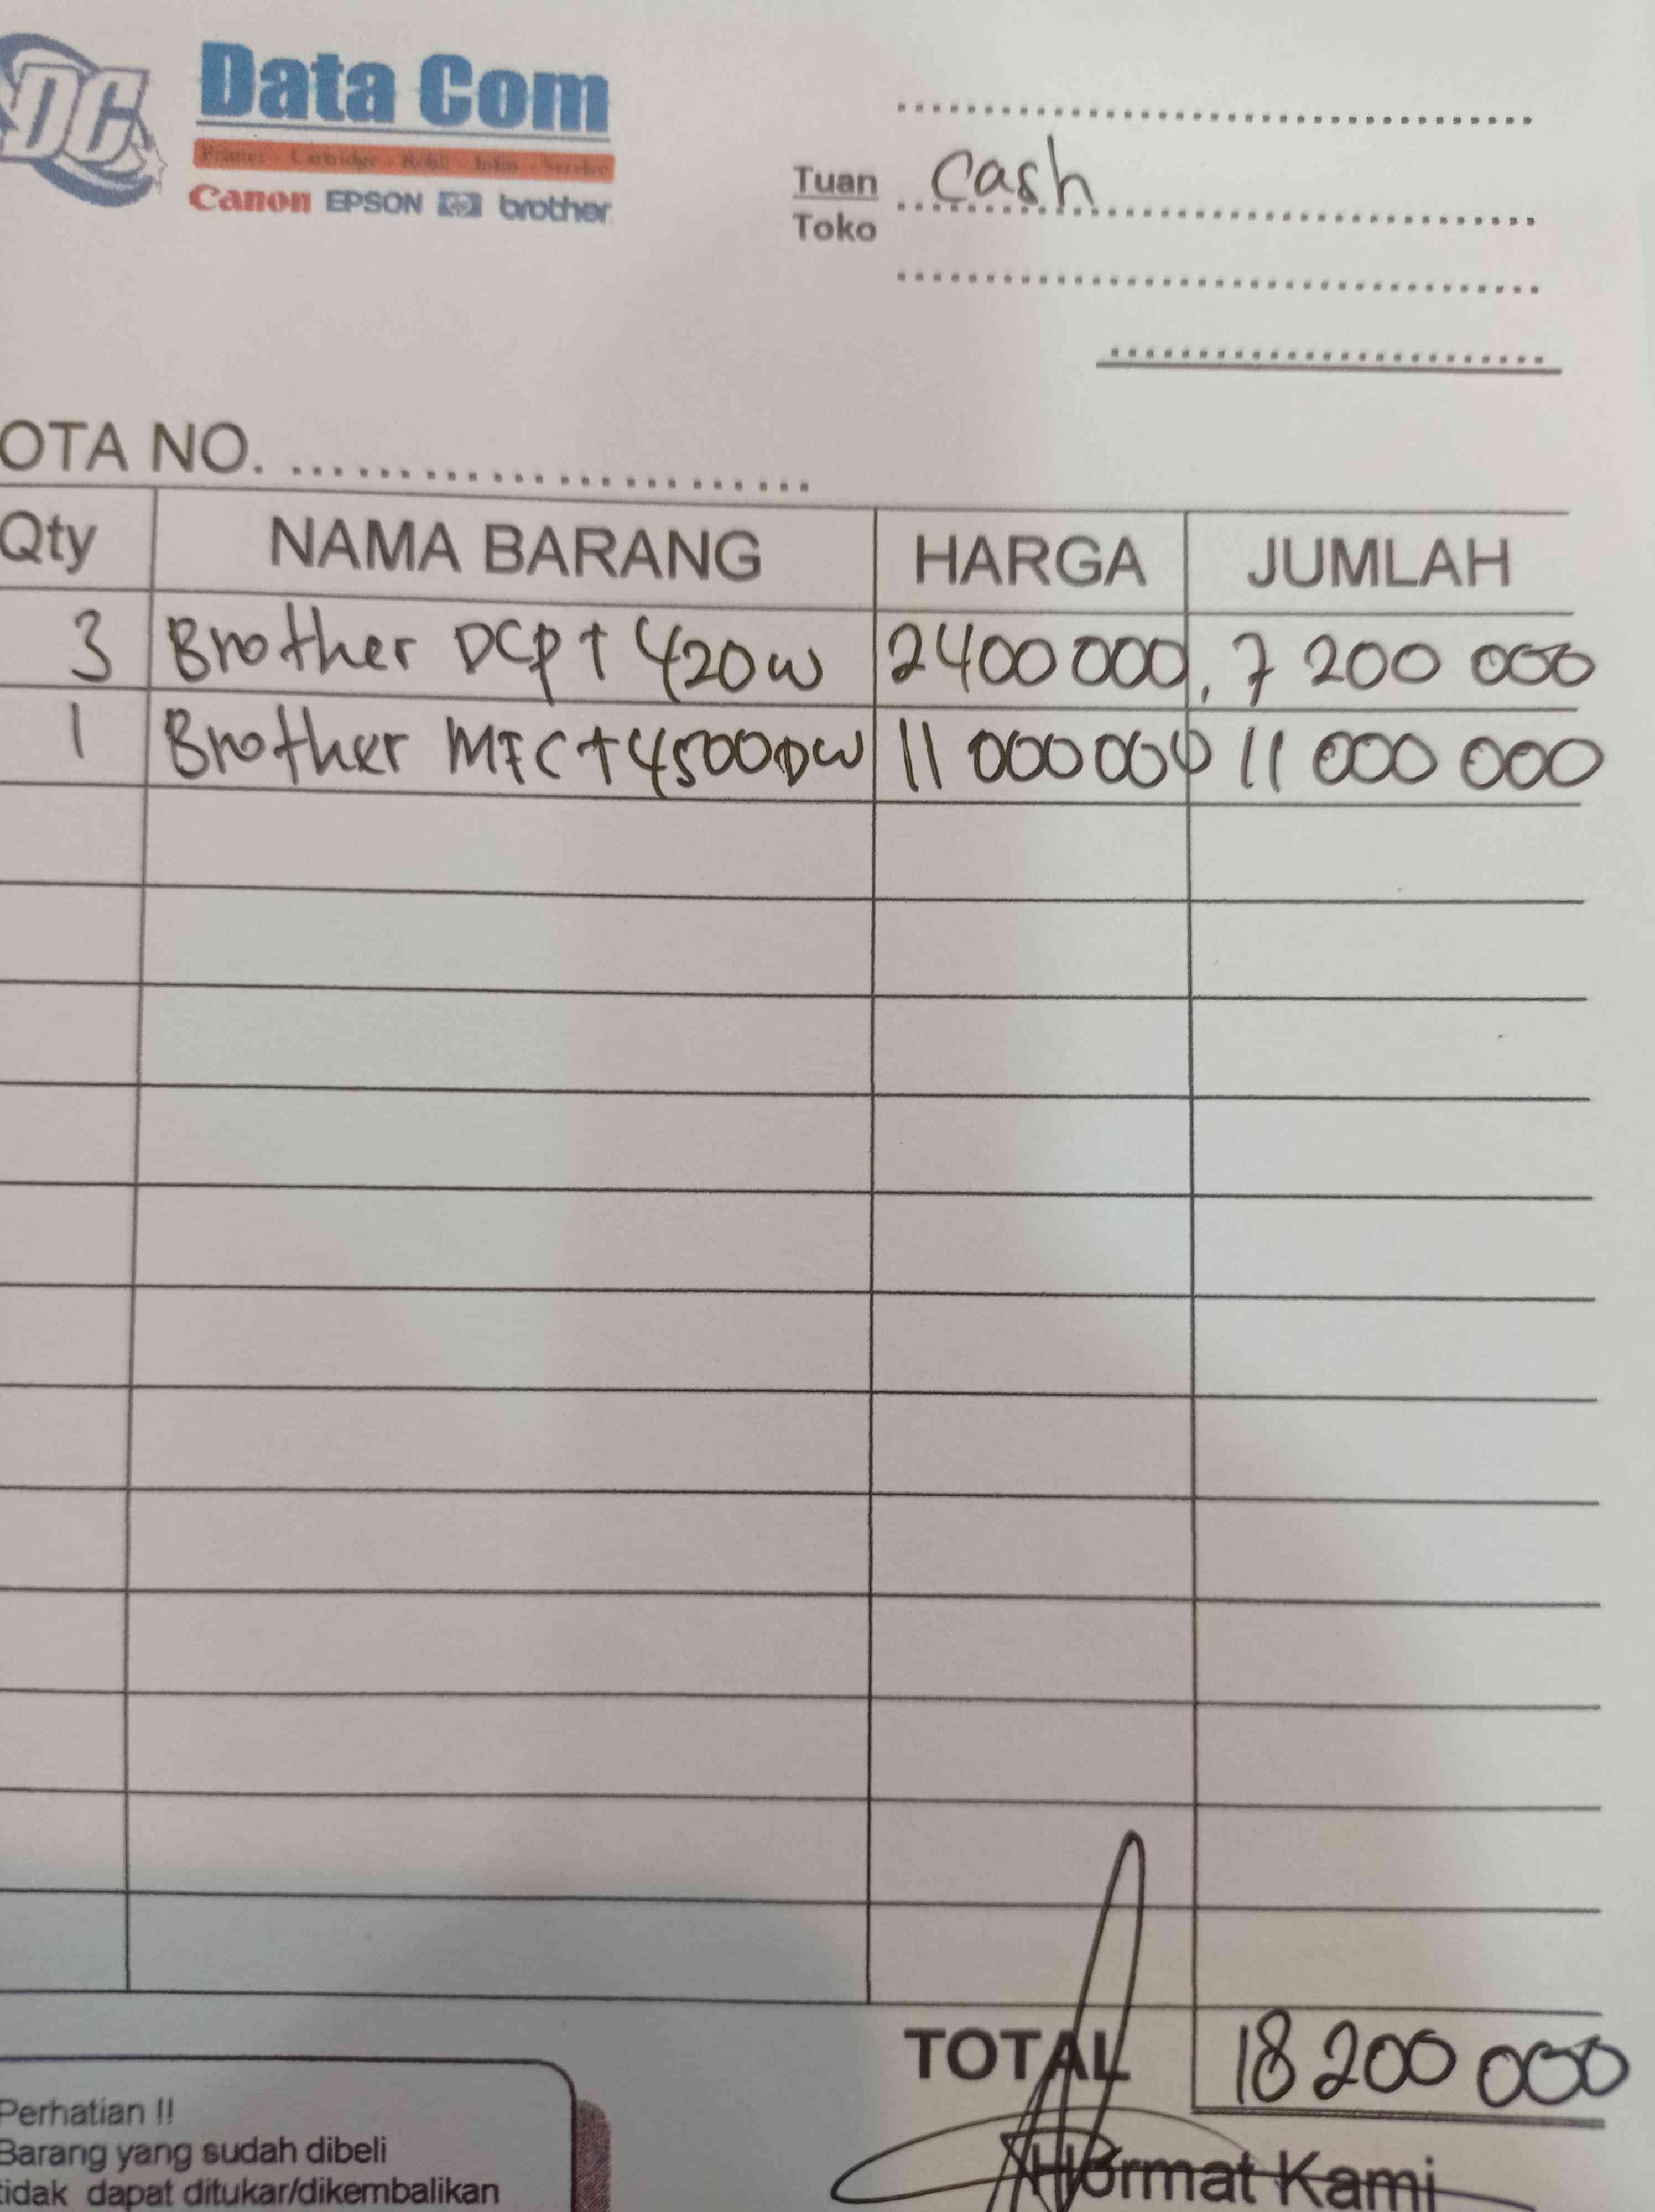 DC
Data Com
Printer - Cartridge - Refill - Infus - Service
Canon EPSON hp brother
Tuan cash
Toko
OTA NO.
Qty NAMA BARANG HARGA JUMLAH
3 Brother DCP T 420W 2400 000, 7 200 000
1 Brother MFC T 4500DW 11 000 000 11 000 000
TOTAL 18 200 000
Perhatian !!
Barang yang sudah dibeli
tidak dapat ditukar/dikembalikan
Hormat Kami